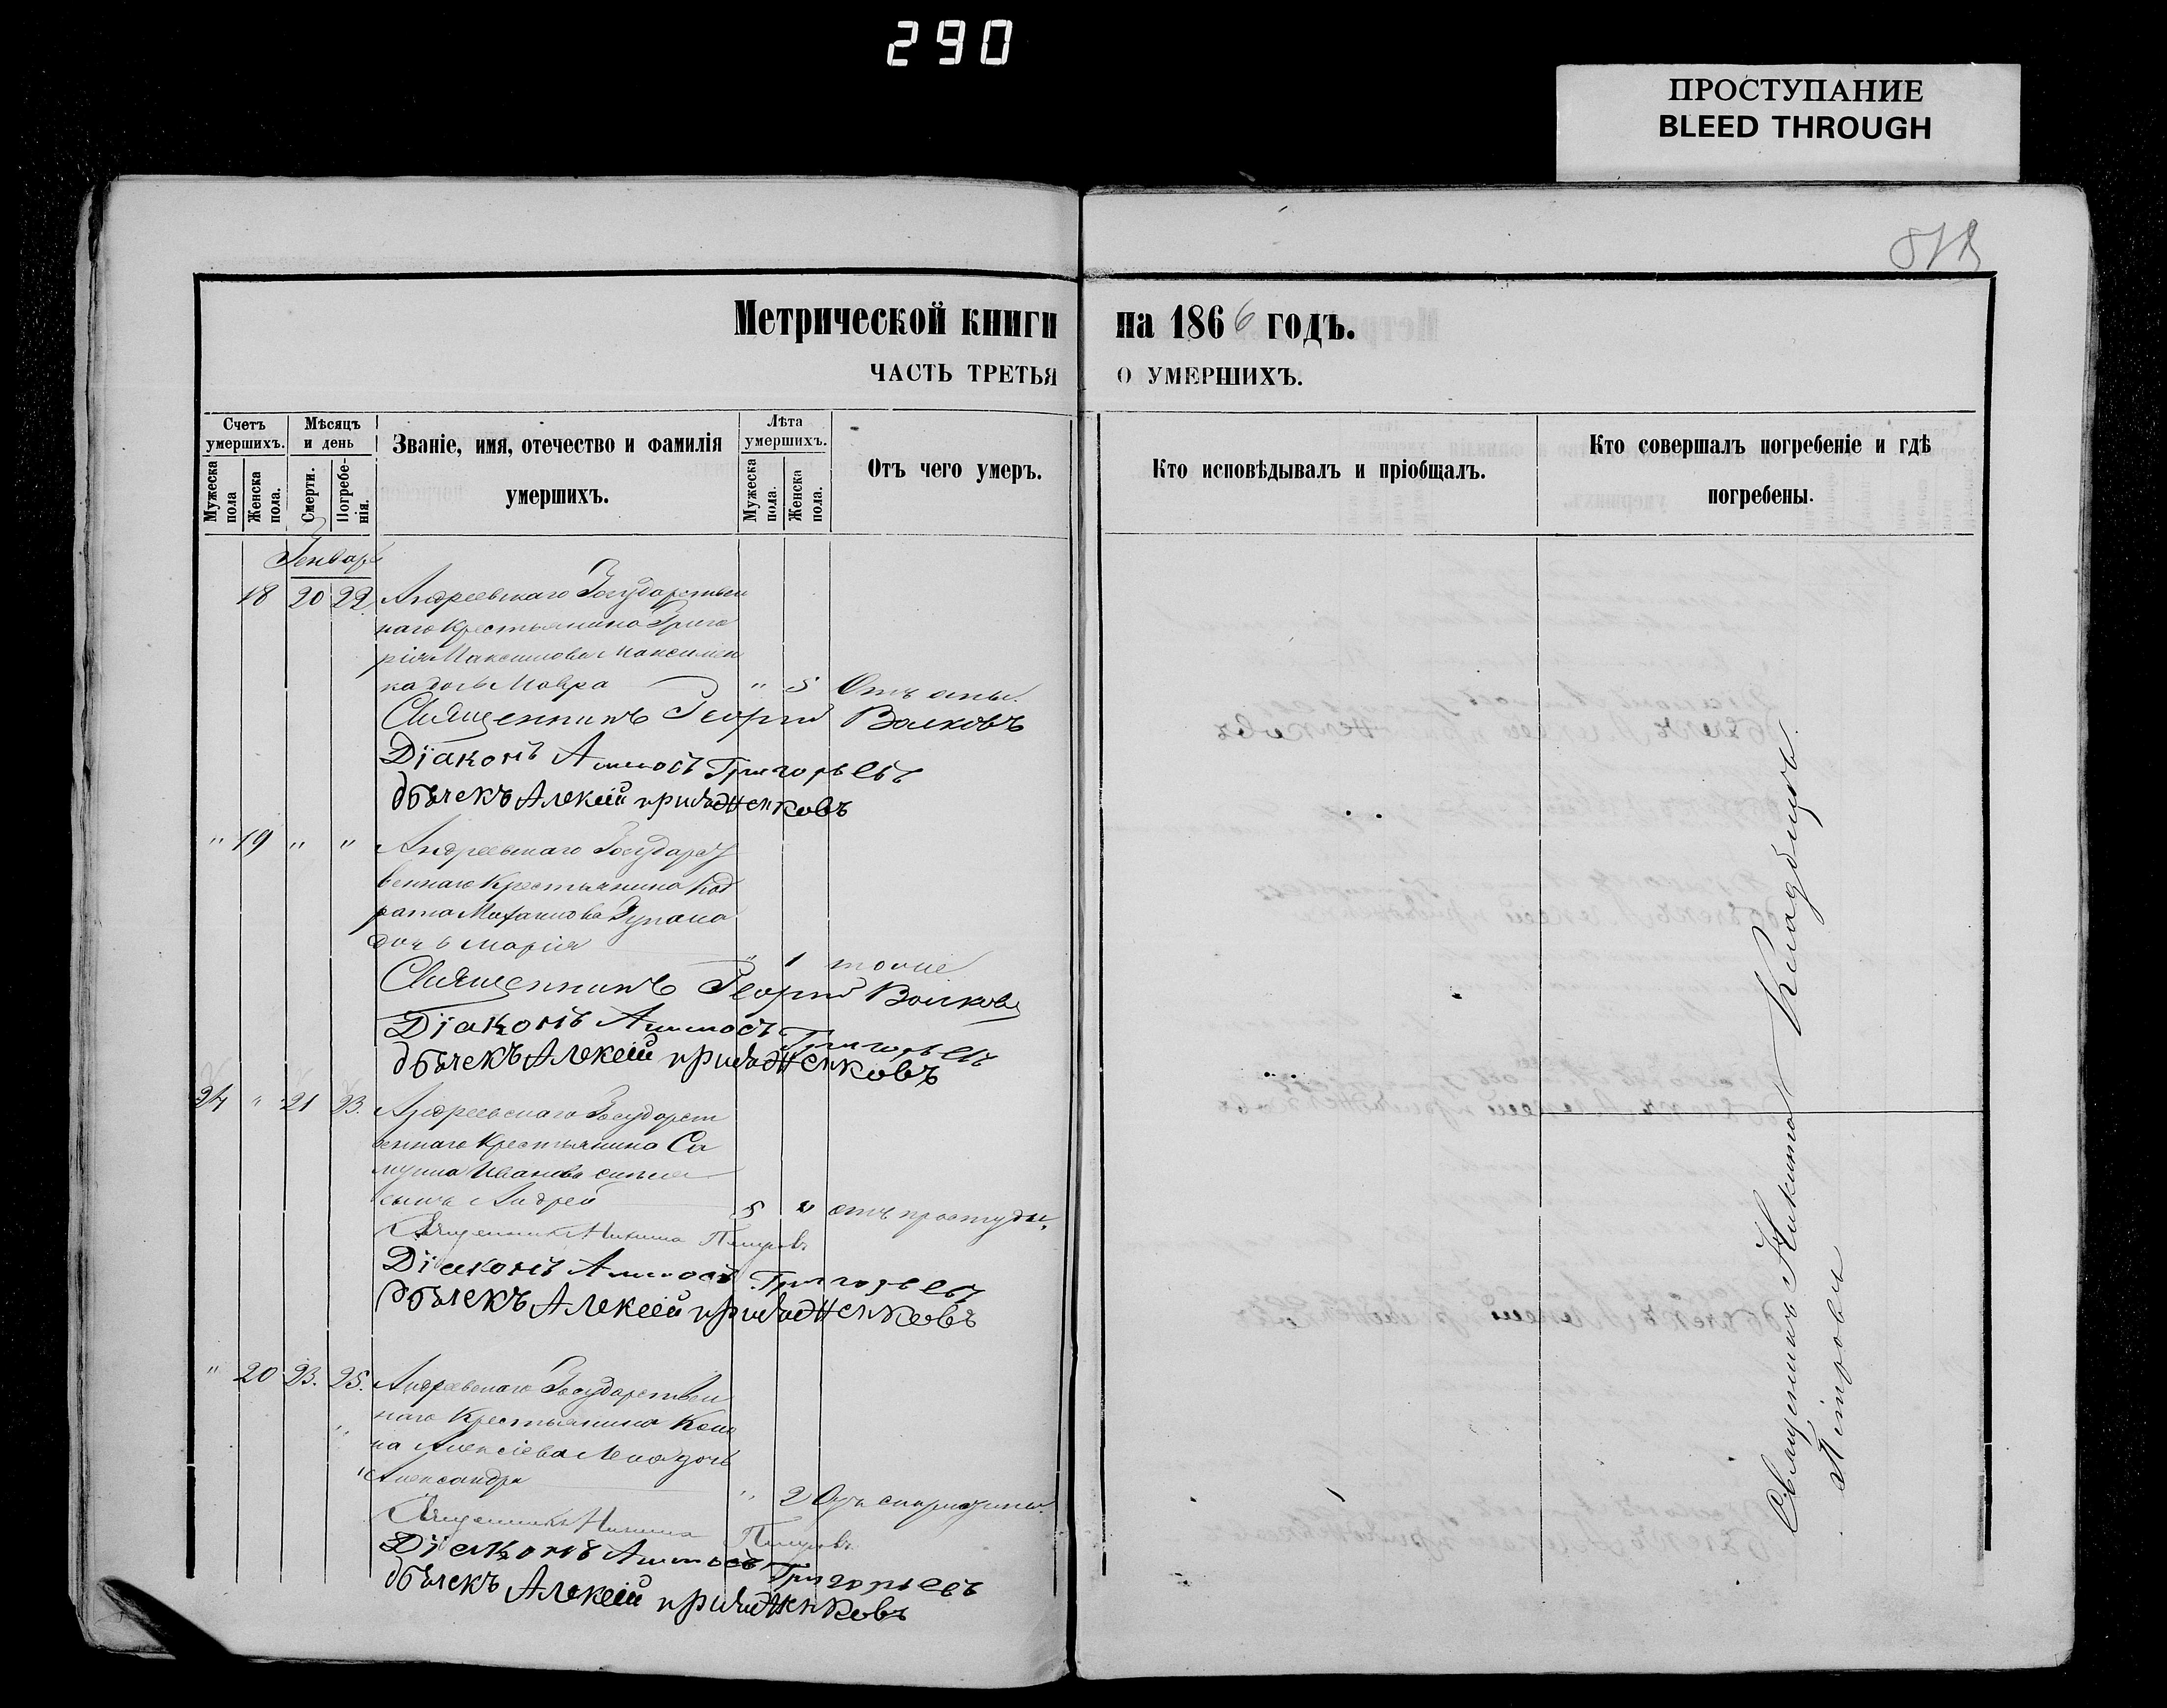 290
ПРОСТУПАНИЕ
BLEED THROUGH
Метрической книги на 1866 годъ.
ЧАСТЬ ТРЕТЬЯ О УМЕРШИХЪ.
Счетъ умершихъ.
Мужеска пола
Женска пола.
Мѣсяцъ и день
Смерти.
Погребенія.
Званіе, имя, отечество и фамилія умершихъ.
Лѣта умершихъ.
Мужеска пола.
Женска пола.
Отъ чего умеръ.
Кто исповѣдывалъ и пріобщалъ.
Кто совершалъ погребеніе и гдѣ погребены.
Генварь
18 20 22 Андреевскаго Государствен
наго Крестьянина Григо
рія Максимова Максимен
ка дочь Мавра " 5 Отъ оспы.
Священникъ Георгій Волковъ
Діаконъ Аммосъ Григорьевъ
дьячекъ Алексій
" 19 " " Андреевскаго Государст
веннаго Крестьянина Код
рата
дочь Марія " 1 тоже
Священникъ Георгій Волковъ
Діаконъ Аммосъ Григорьевъ
дьячекъ Алексій
24 " 21 23. Андреевскаго Государст
веннаго Крестьянина Са
муила Иванова
сынъ Андрей 5 " отъ простуды.
Священникъ Никита Петровъ
Діаконъ Аммосъ Григорьевъ
дьячекъ Алексій
" 20 23. 25. Андреевскаго Государствен
наго Крестьянина Коно
на Алексіева дочь
Александра " 2 Отъ скарлатины.
Священникъ Никита Петровъ
Діаконъ Аммосъ Григорьевъ
дьячекъ Алексій
Священникъ Никита Петровъ
Кладбищѣ